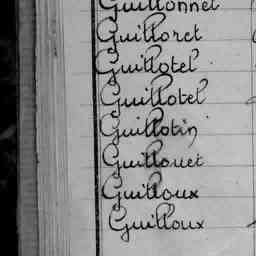 Guillonnel
Guilloret
Guillotel
Guillotel
Guillotin
Guillouet
Guilloux
Guilloux